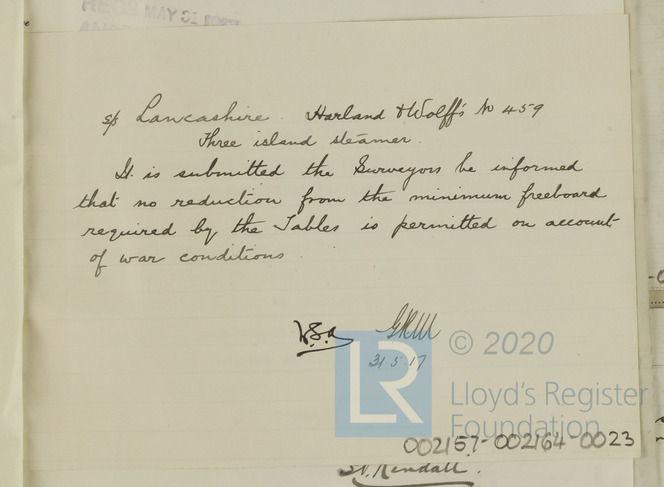 RECD MAY 31
s/s Lancashire. Harland & Wolff's No 459
Three island steamer.
It is submitted the Surveyors be informed
that no reduction from the minimum freeboard
required by the Tables is permitted on account
of war conditions.
31.5.17
LR
© 2020
Lloyd's Register
Foundation
002157-002164-0023
Kendall.